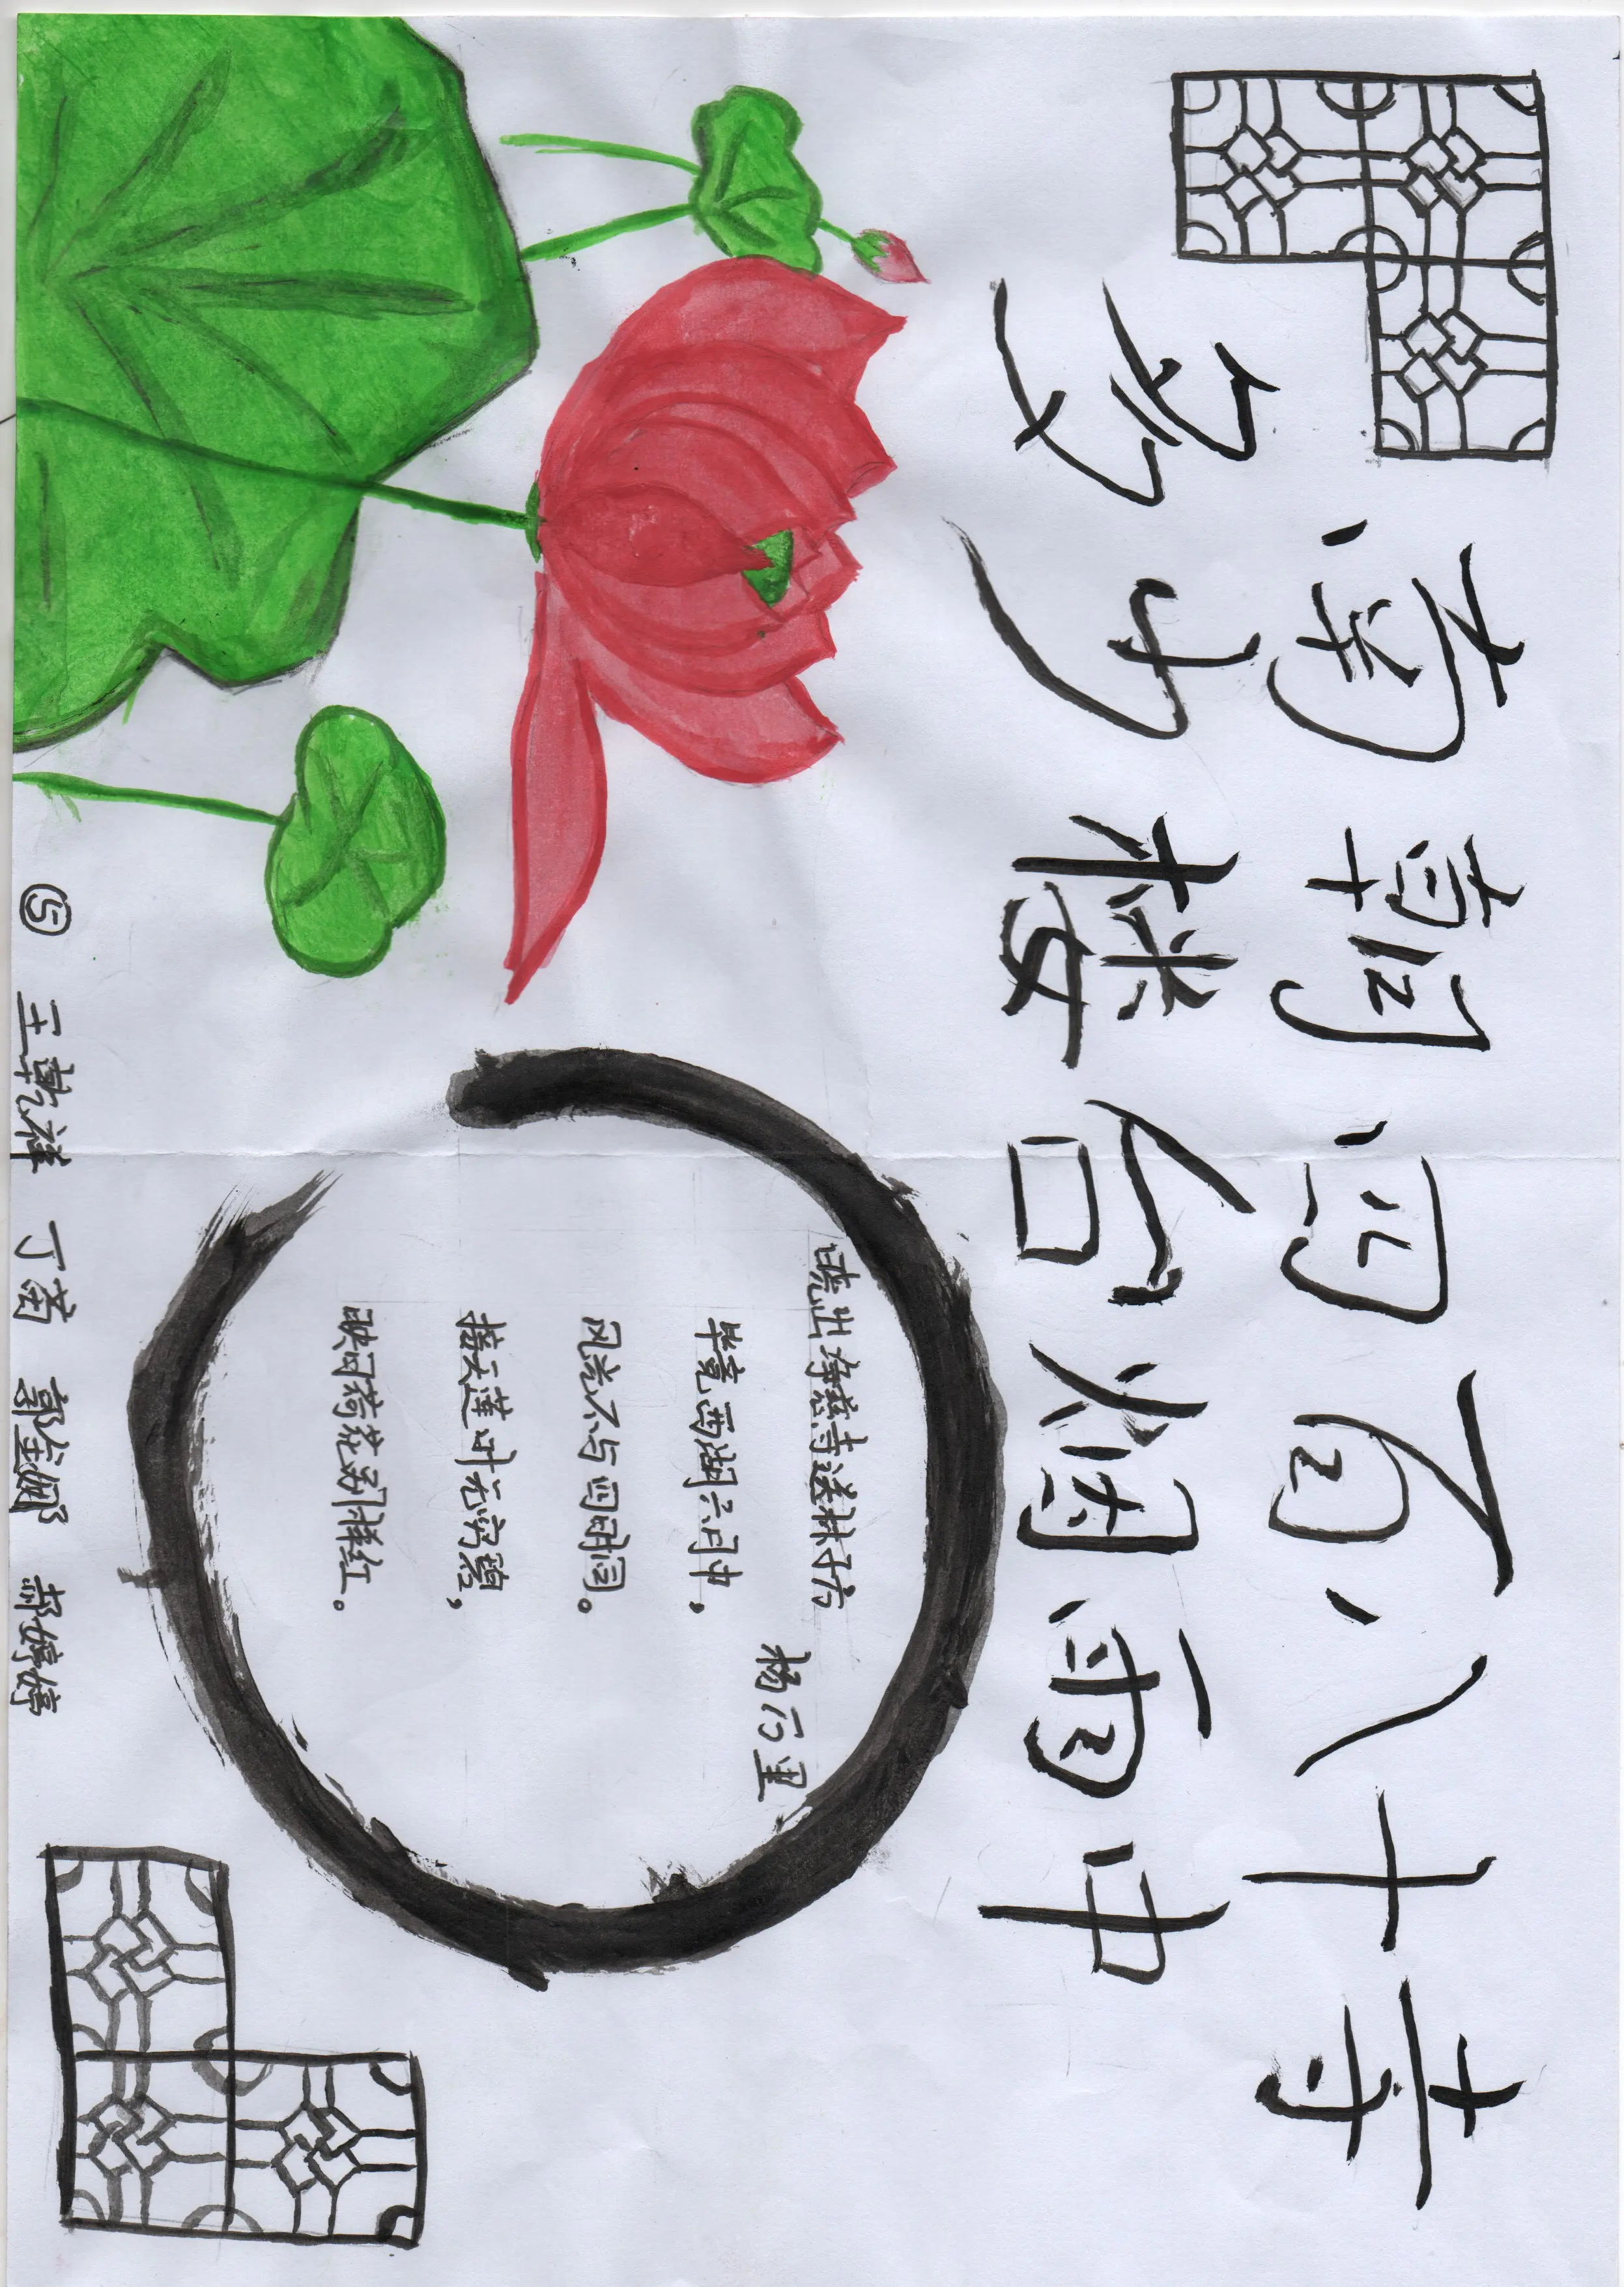 南朝四百八十寺
多少楼台烟雨中
晓出净慈寺送林子方
杨万里
毕竟西湖六月中，
风光不与四时同。
接天莲叶无穷碧，
映日荷花别样红。
⑤ 王乾祥 丁茵 郭金娜 郝婷婷